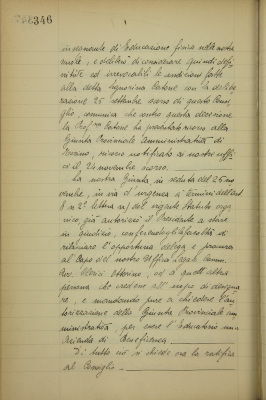 346
insegnante di Educazione fisica nelle nostre
scuole, e deliberò di considerare quindi defi-
nitiva ed irrevocabile la
alla detta Signorina Catone con la delibe-
razione 25 Settembre scorso di questo Consi-
glio, comunica che contro questa decisione
la Prof.ssa Catone ha presentato ricorso alla
Giunta Provinciale Amministrativa di
ricorso notificato ai nostri uffi-
ci il 24 novembre scorso.
La nostra Giunta in seduta del 25 no-
vembre, in via d'urgenza a termini dell'art.
8 n. 2° lettera a) del vigente statuto orga-
nico, già autorizzò il Presidente a stare
in giudizio, conferendogli la facoltà di
rilasciare l'opportuna delega e procura
al Capo del nostro Ufficio Legale Comm.
Avv. Ettorino, od a quell'altra
persona che credesse all'uopo di designa-
re, e mandando pure a chiedere l'au-
torizzazione della Giunta Provinciale Am-
ministrativa, per essere l'Educatorio una
Azienda di Beneficenza.
Di tutto ciò si chiede ora la ratifica
al Consiglio.